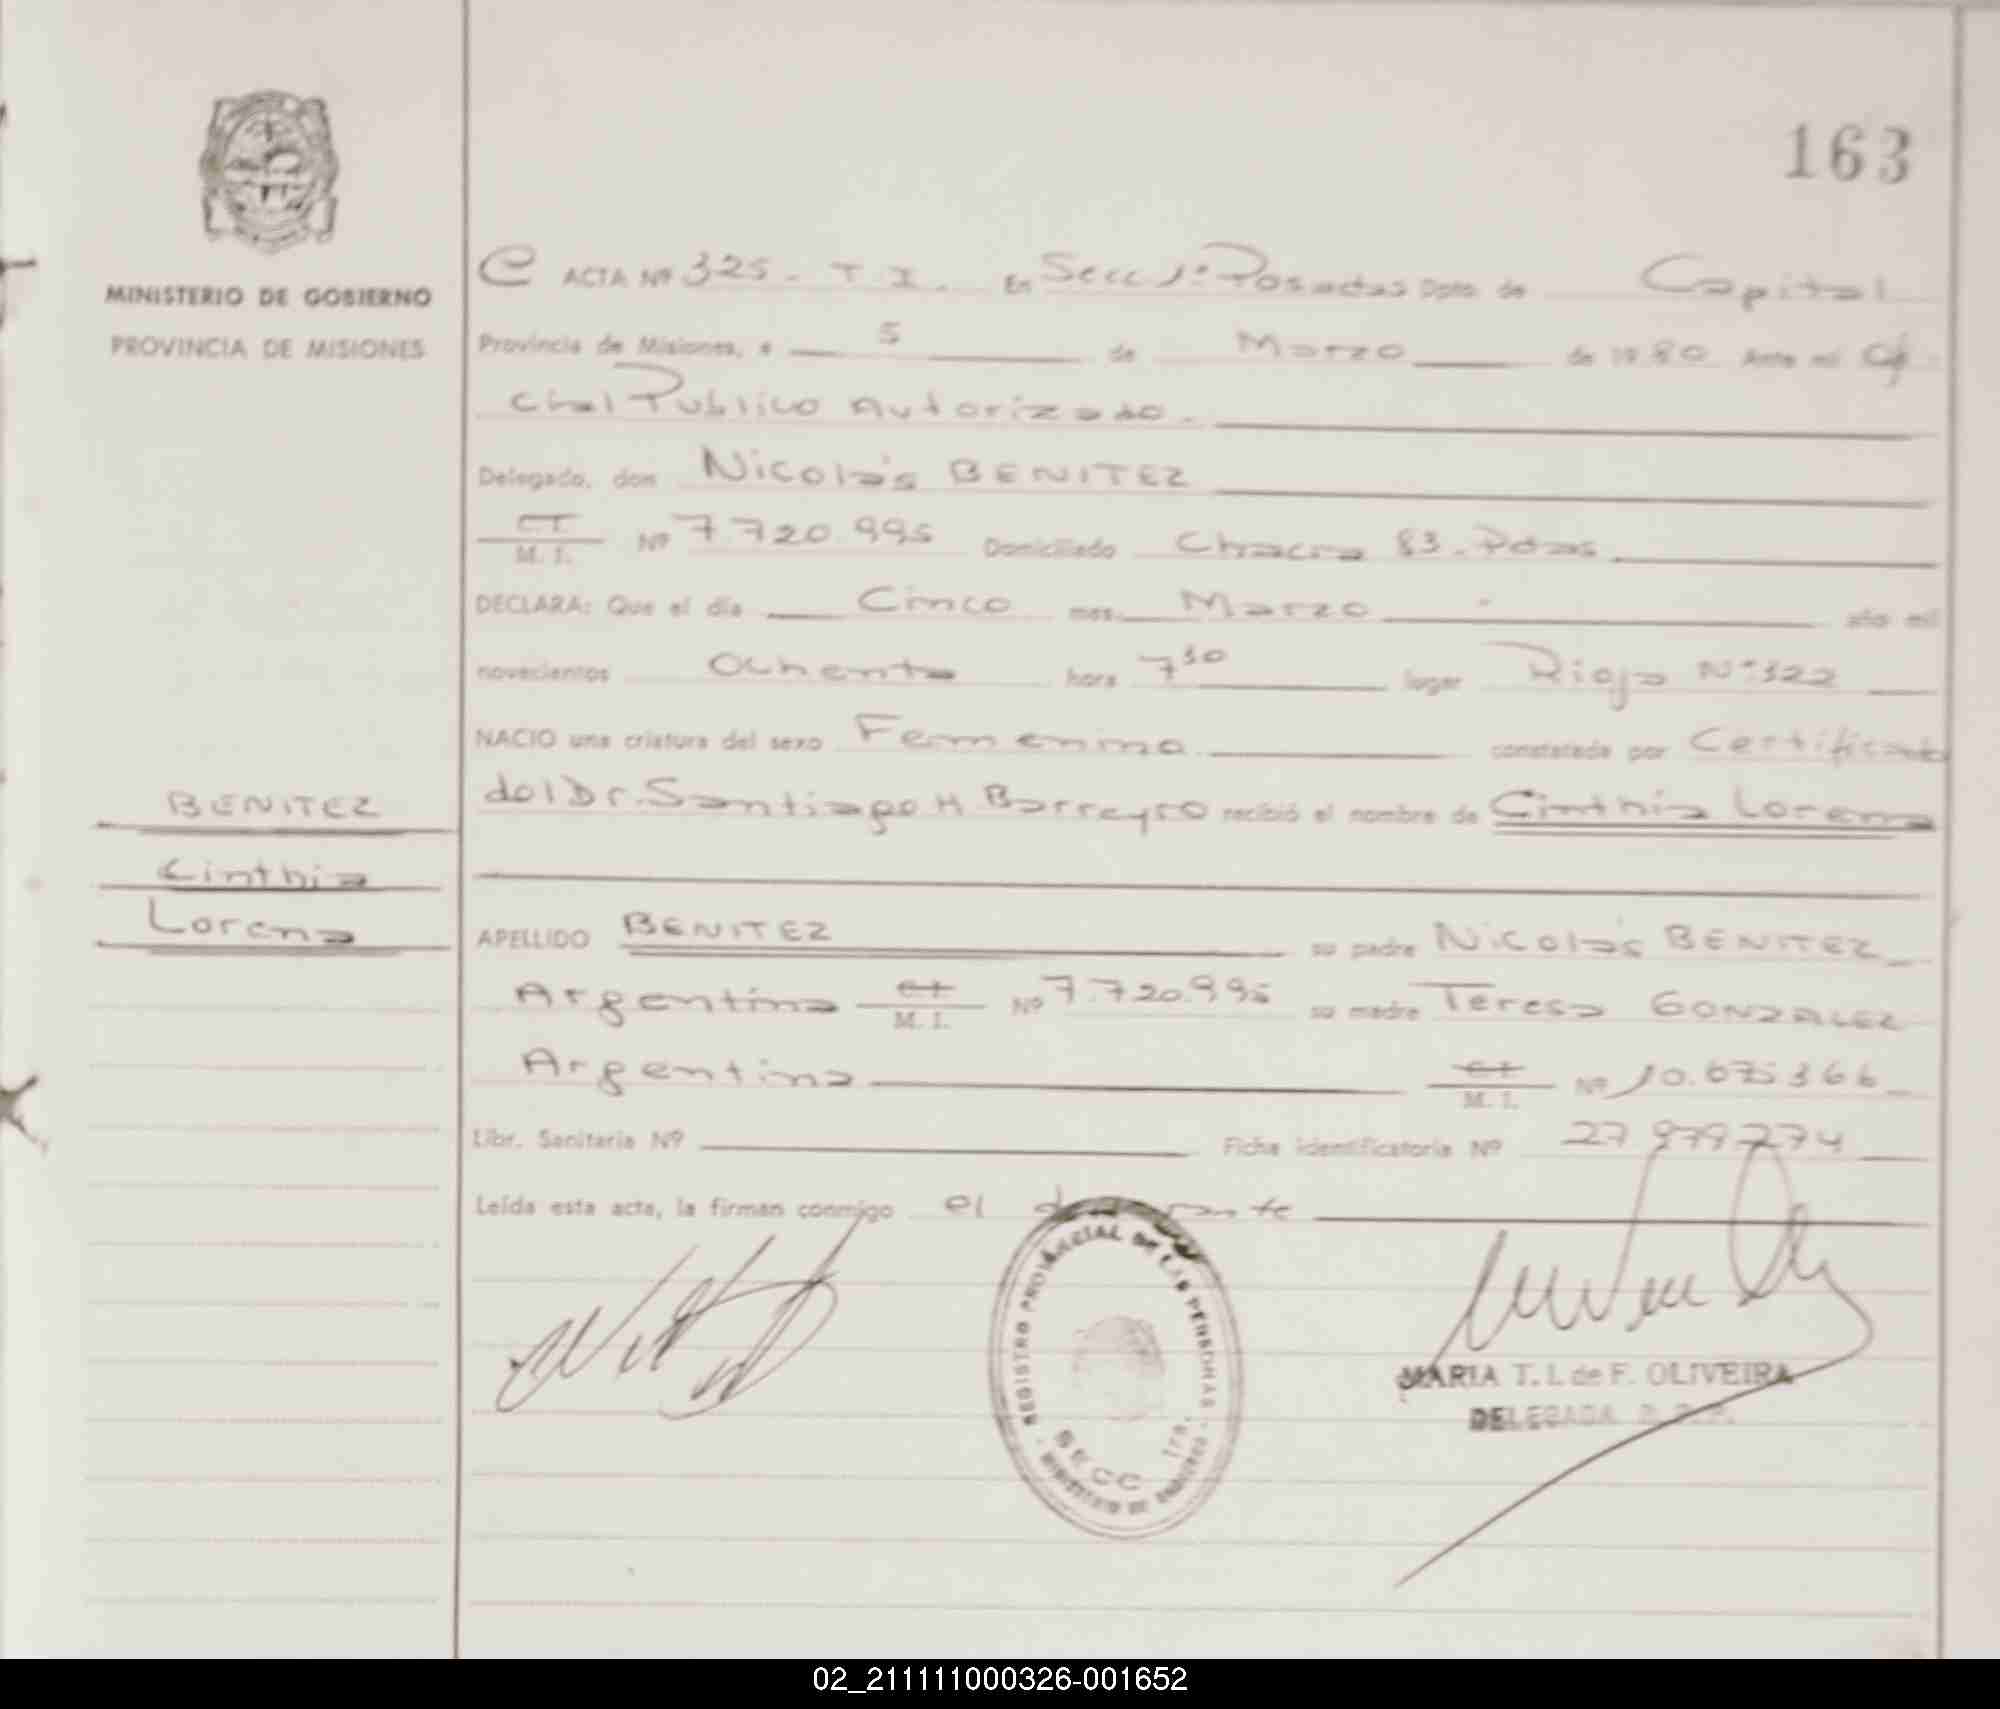 163
MINISTERIO DE GOBIERNO
PROVINCIA DE MISIONES
ACTA Nº 325 - T I. En Secc 1ª Posadas Dpto de Capital
Provincia de Misiones, a 5 de Marzo de 1980 Ante mi Ofi
cial Publico Autorizado.
Delegado, don Nicolás BENITEZ
C.I.
M. I. Nº 7.720.995 Domiciliado Chacra 83 - Pdas.
DECLARA: Que el día Cinco mes Marzo año mil
novecientos Ochenta hora 7 30 lugar Rioja Nº 322
NACIO una criatura del sexo Femenino constatada por Certificado
del Dr. Santiago H Barreyro recibió el nombre de Cinthia Lorena
BENITEZ
Cinthia
Lorena
APELLIDO BENITEZ su padre Nicolás BENITEZ
Argentina M. I. Nº 7.720.995 su madre Teresa GONZALEZ
Argentina M. I. Nº 10.675366
Libr. Sanitaria Nº Ficha identificatoria Nº 27 979274
Leída esta acta, la firman conmigo el
REGISTRO PROVINCIAL DE LAS PERSONAS
SECC 1ra.
MARIA T. I. de F. OLIVEIRA
DELEGADA
02_211111000326-001652